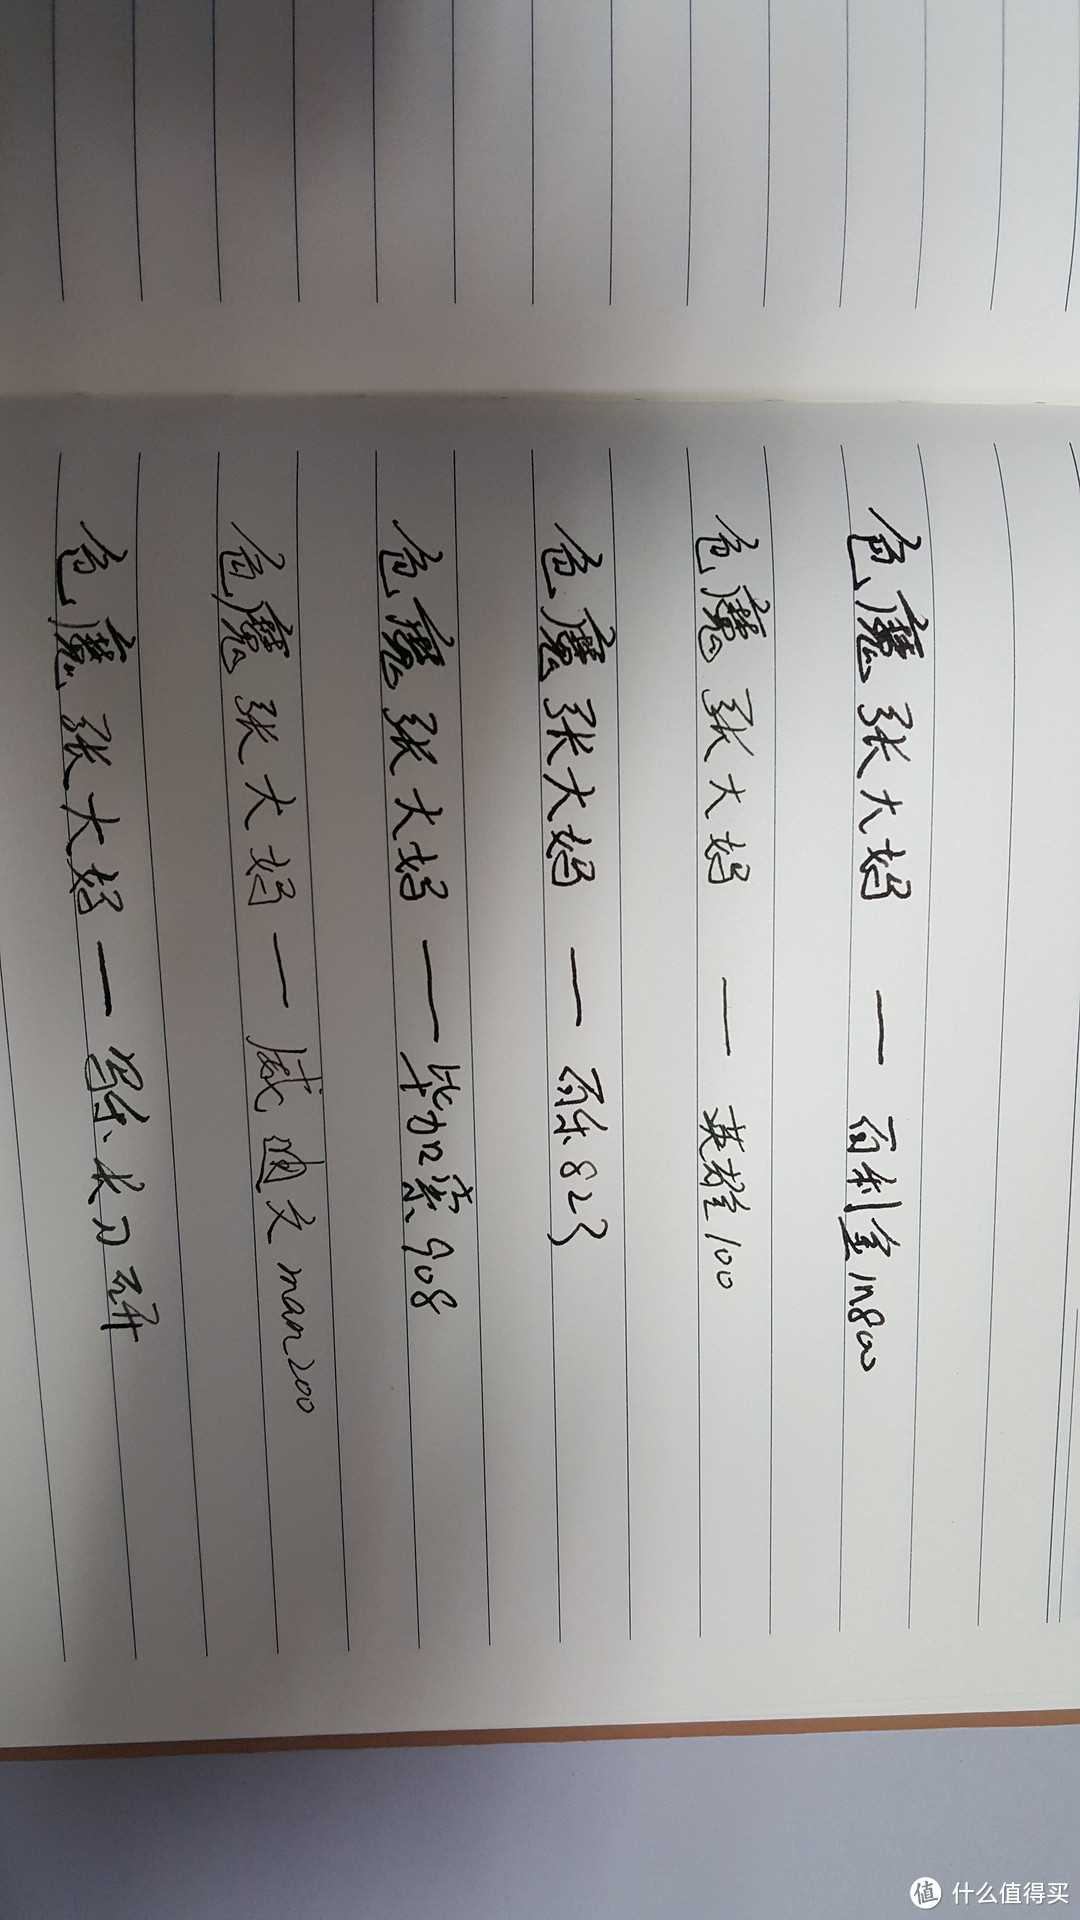 色魔张大妈 — 百利金m800
色魔张大妈 — 英雄100
色魔张大妈 — 百乐823
色魔张大妈 — 毕加索908
色魔张大妈 — 威迪文man200
色魔张大妈 — 写乐长刀研
值 什么值得买